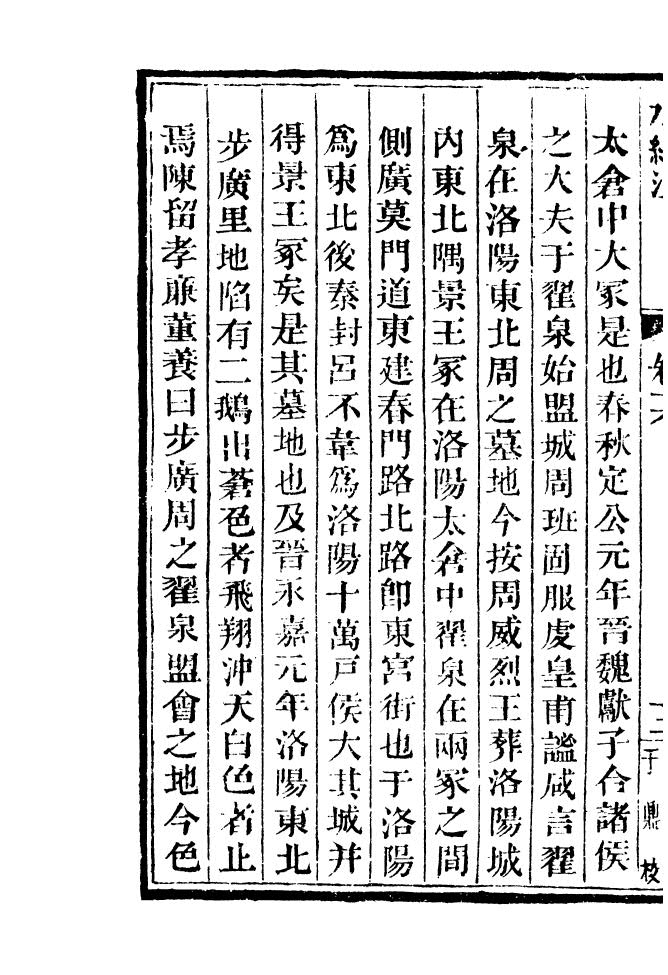 水經注 卷十六 十二 于鼎校
太倉中大冢是也春秋定公元年晉魏獻子合諸侯
之大夫于翟泉始盟城周班固服虔皇甫謐咸言翟
泉在洛陽東北周之墓地今按周威烈王葬洛陽城
內東北隅景王冢在洛陽太倉中翟泉在兩冢之間
側廣莫門道東建春門路北路卽東宮街也于洛陽
爲東北後秦封呂不韋爲洛陽十萬戸侯大其城并
得景王冢矣是其墓地也及晉永嘉元年洛陽東北
步廣里地陷有二鵝出蒼色者飛翔沖天白色者止
焉陳留孝廉董養曰步廣周之翟泉盟會之地今色